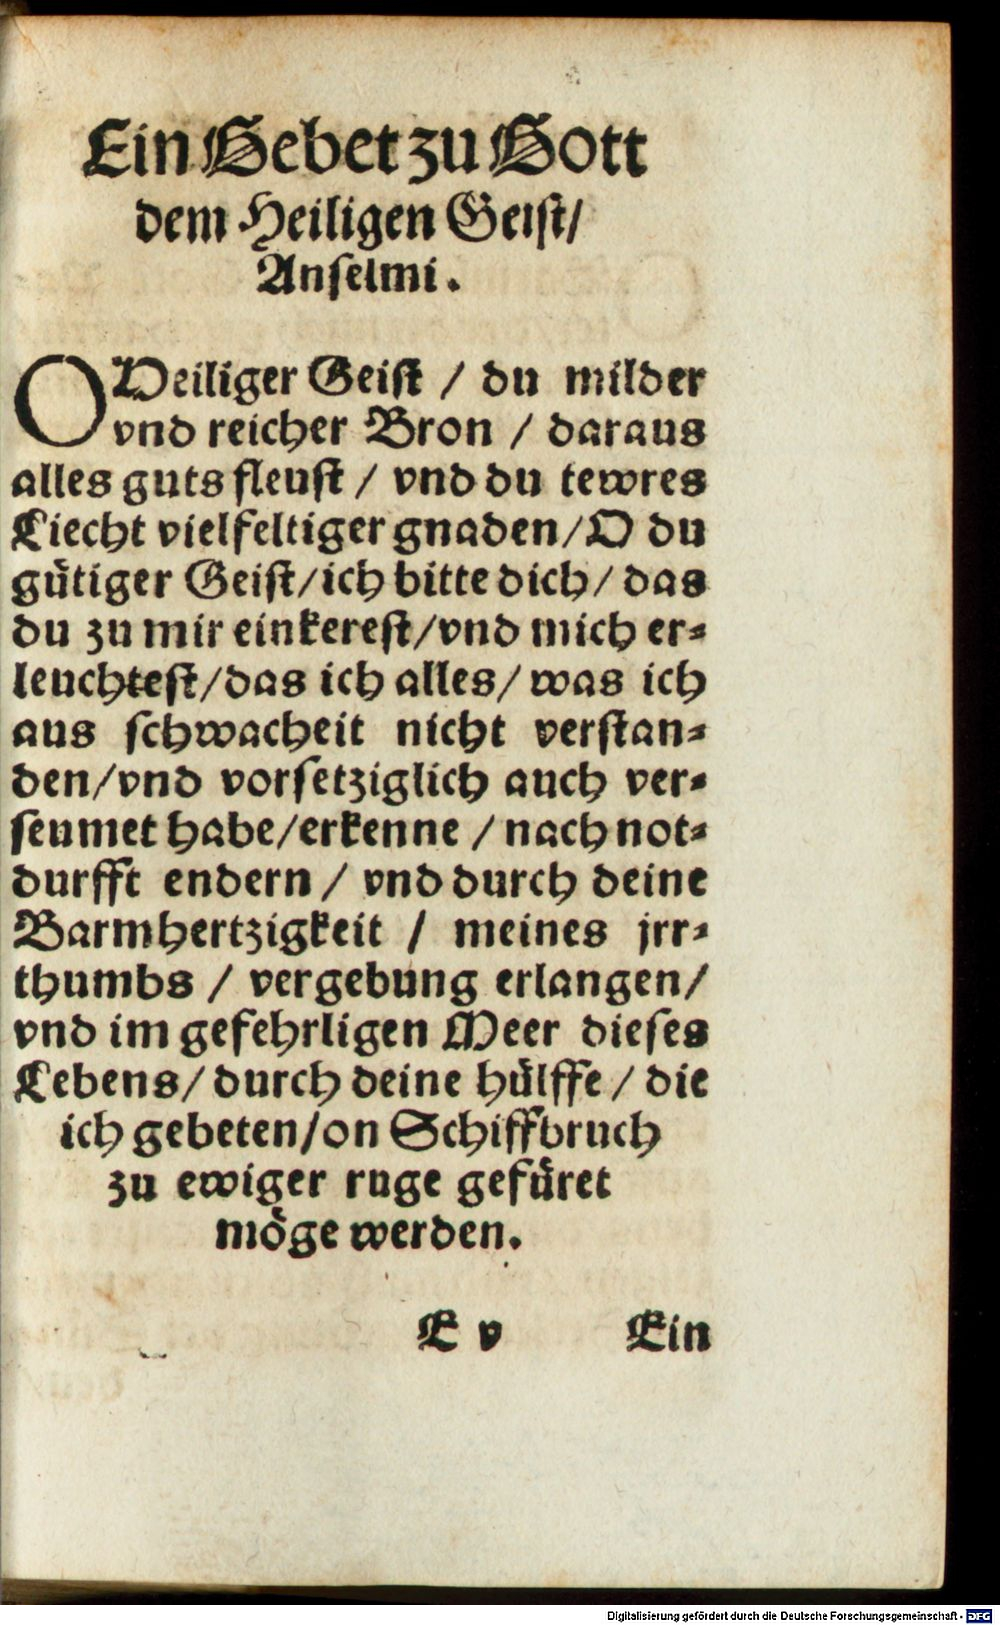 Ein Gebet zu Gott
dem Heiligen Geist/
Anselmi.
O Heiliger Geist / du milder
vnd reicher Bron / daraus
alles guts fleust / vnd du tewres
Liecht vielfeltiger gnaden/O du
gütiger Geist/ich bitte dich/ das
du zu mir einkerest/vnd mich er-
leuchtest/das ich alles/ was ich
aus schwacheit nicht verstan-
den/vnd vorsetziglich auch ver-
seumet habe/erkenne / nach not-
durfft endern / vnd durch deine
Barmhertzigkeit / meines jrr-
thumbs / vergebung erlangen/
vnd im gefehrligen Meer dieses
Lebens/ durch deine hülffe / die
ich gebeten/on Schiffbruch
zu ewiger ruge gefüret
möge werden.
E v Ein
Digitalisierung gefördert durch die Deutsche Forschungsgemeinschaft - DFG